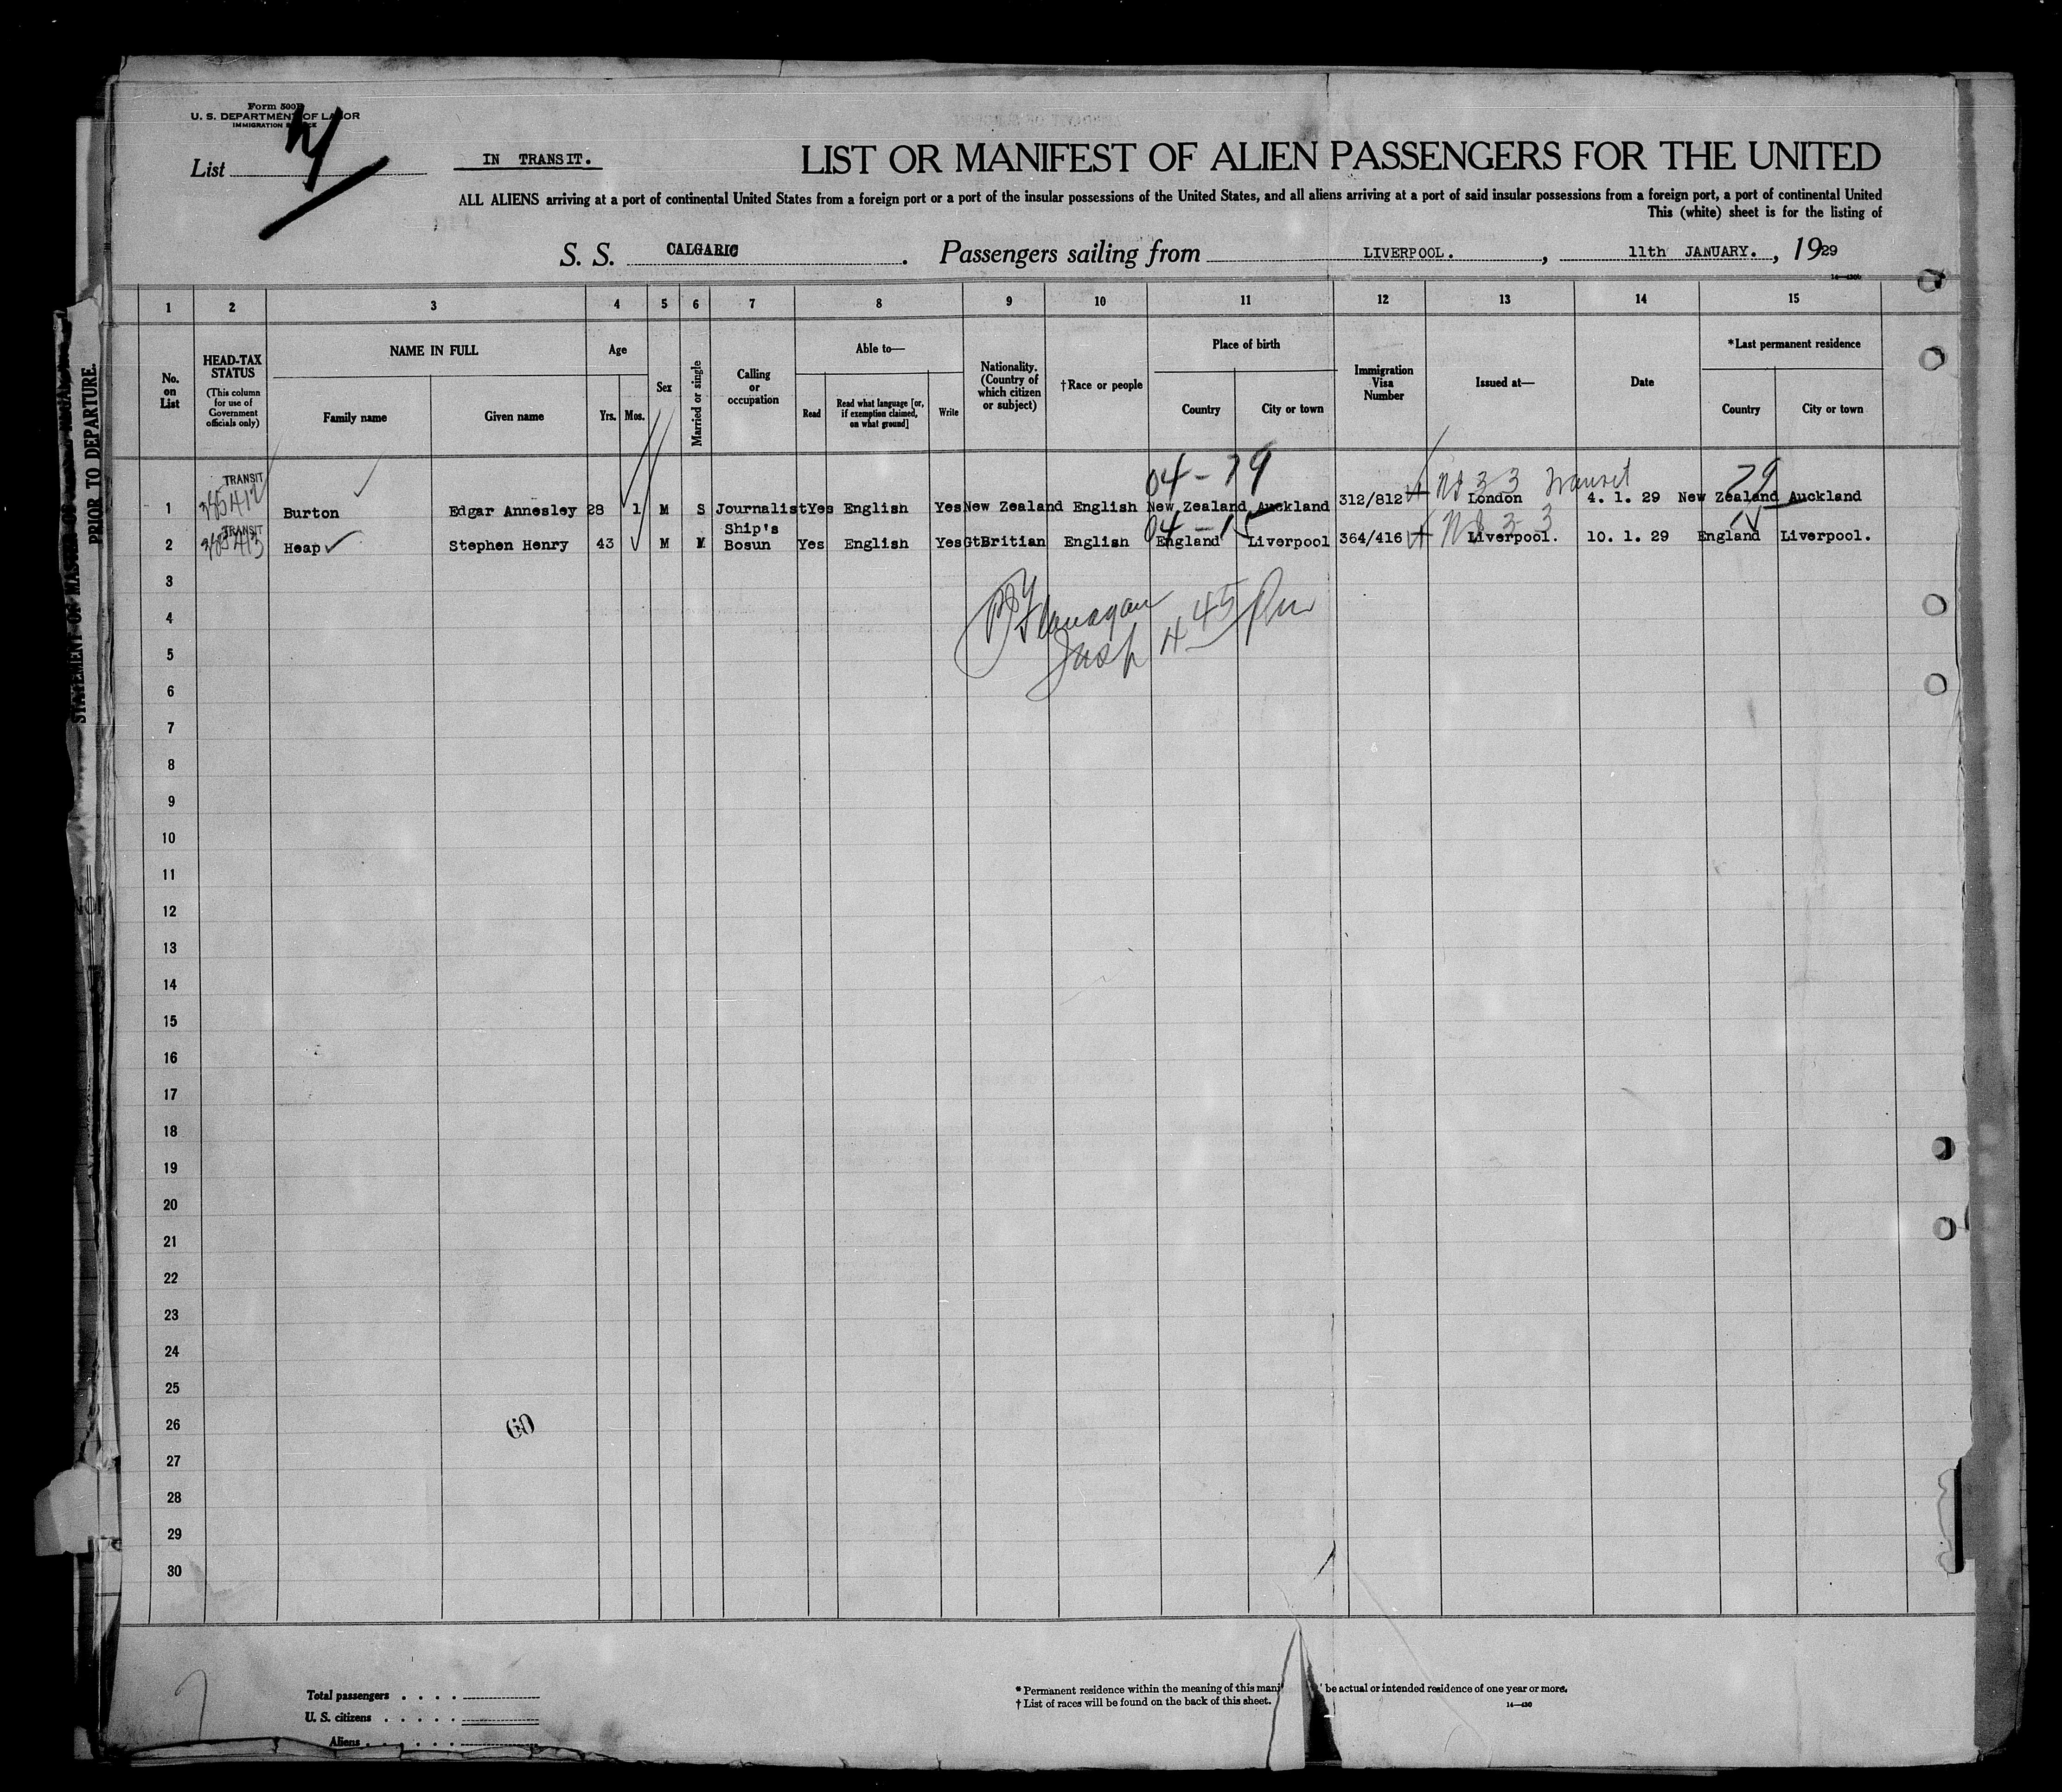 Form 500
U. S. DEPARTMENT OF LABOR
IMMIGRATION
List
IN TRANSIT.
LIST OR MANIFEST OF ALIEN PASSENGERS FOR THE UNITED
ALL ALIENS arriving at a port of continental United States from a foreign port or a port of the insular possessions of the United States, and all aliens arriving at a port of said insular possessions from a foreign port, a port of continental United
This (white) sheet is for the listing of
S. S. CALGARIC. Passengers sailing from LIVERPOOL. , 11th JANUARY. , 1929
1 2 3 4 5 6 7 8 9 10 11 12 13 14 15
No. on List
HEAD-TAX STATUS
(This column for use of Government officials only)
NAME IN FULL
Family name
Given name
Age
Yrs.
Mos.
Sex
Married or single
Calling or occupation
Able to—
Read
Read what language [or, if exemption claimed, on what ground]
Write
Nationality. (Country of which citizen or subject)
†Race or people
Place of birth
Country
City or town
Immigration Visa Number
Issued at—
Date
*Last permanent residence
Country
City or town
04-79 Transit 79
1 TRANSIT 385412 Burton Edgar Annesley 28 1 M S Journalist Yes English Yes New Zealand English New Zealand Auckland 312/812 London 4. 1. 29 New Zealand Auckland
04-15
2 TRANSIT 385413 Heap Stephen Henry 43 M M Ship's Bosun Yes English Yes GtBritian English England Liverpool 364/416 Liverpool. 10. 1. 29 England Liverpool.
3
Flanagan
4
Insp 4 45 Pm
5
6
7
8
9
10
11
12
13
14
15
16
17
18
19
20
21
22
23
24
25
26
60
27
28
29
30
Total passengers
U. S. citizens
Aliens
* Permanent residence within the meaning of this be actual or intended residence of one year or more.
† List of races will be found on the back of this sheet.
14—430
PRIOR TO DEPARTURE.
STATEMENT OF MASTER